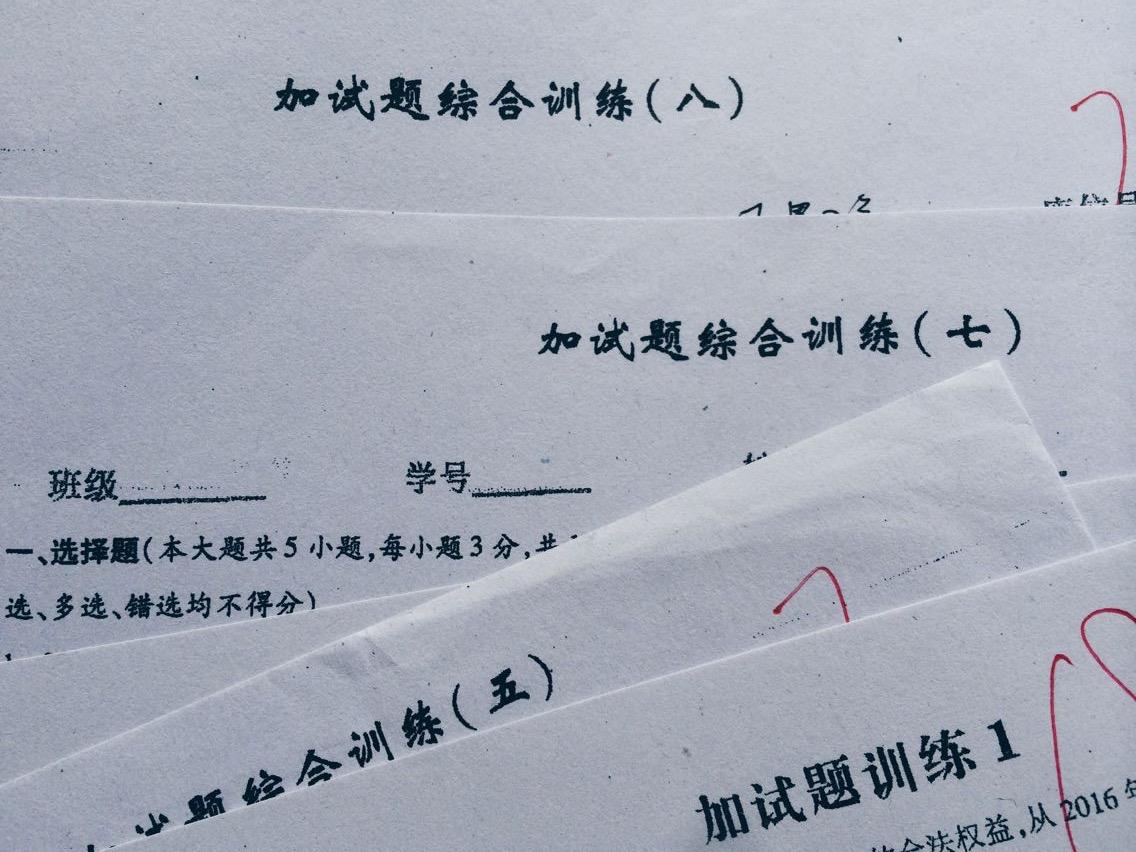 加试题综合训练(八)
加试题综合训练(七)
班级 学号
一、选择题(本大题共5小题,每小题3分,共
选、多选、错选均不得分)
试题综合训练(五)
加试题训练1
合法权益,从2016年